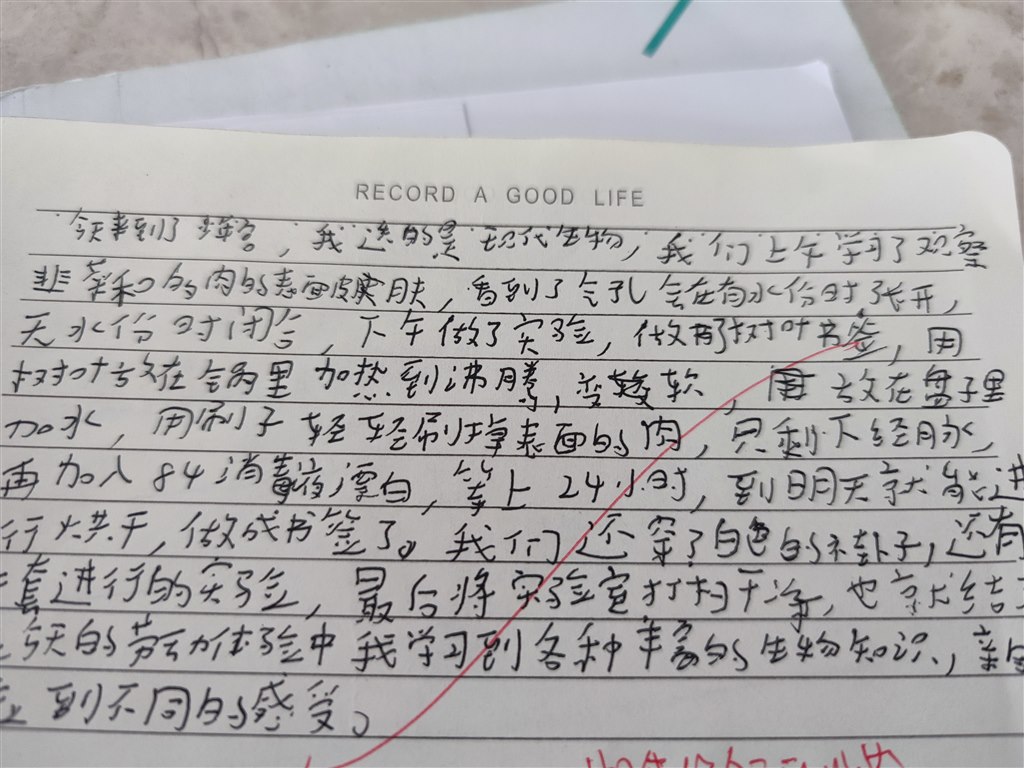 RECORD A GOOD LIFE
今天来到了，我选的是现代生物，我们上午学习了观察
韭菜和的肉的表面皮肤，看到了气孔会在有水份时张开，
无水份时闭合，下午做了实验，做有了树叶书签，用
树叶放在锅里加热到沸腾，变软，用放在盘子里
加水，用刷子轻轻刷掉表面的肉，只剩下经脉，
再加入84消毒液漂白，等上24小时，到明天就能进
行烘干，做成书签了。我们还穿了白色的褂子，还有
套进行的实验，最后将实验室打扫干净，也就结
今天的劳动体验中我学习到各种丰富的生物知识，亲
到不同的感受。